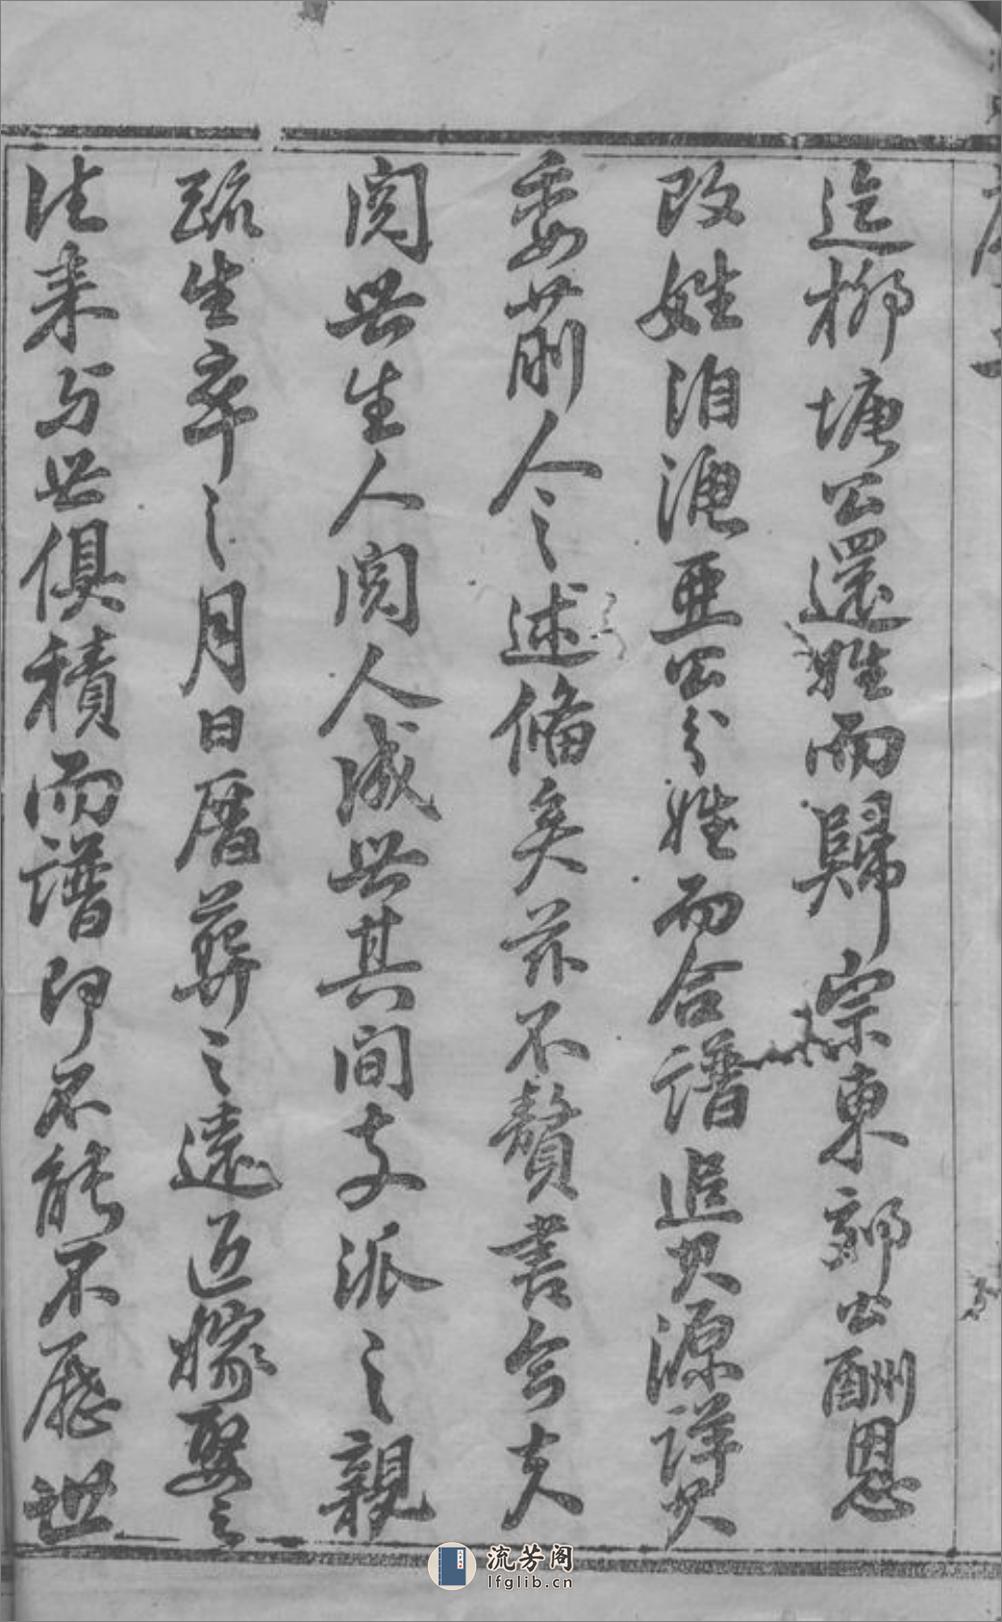 迄柳塘公還姓而歸宗東郊公酬恩
改姓洎漁亜公分姓而合譜追其源詳其
委前人之述備矣茲不贅書今夫
閱世生人閱人成世其間支派之親
疏生卒之月日厝葬之遠近嫁娶之
往来与世俱積而譜即不能不歷世
流芳阁
lfglib.cn